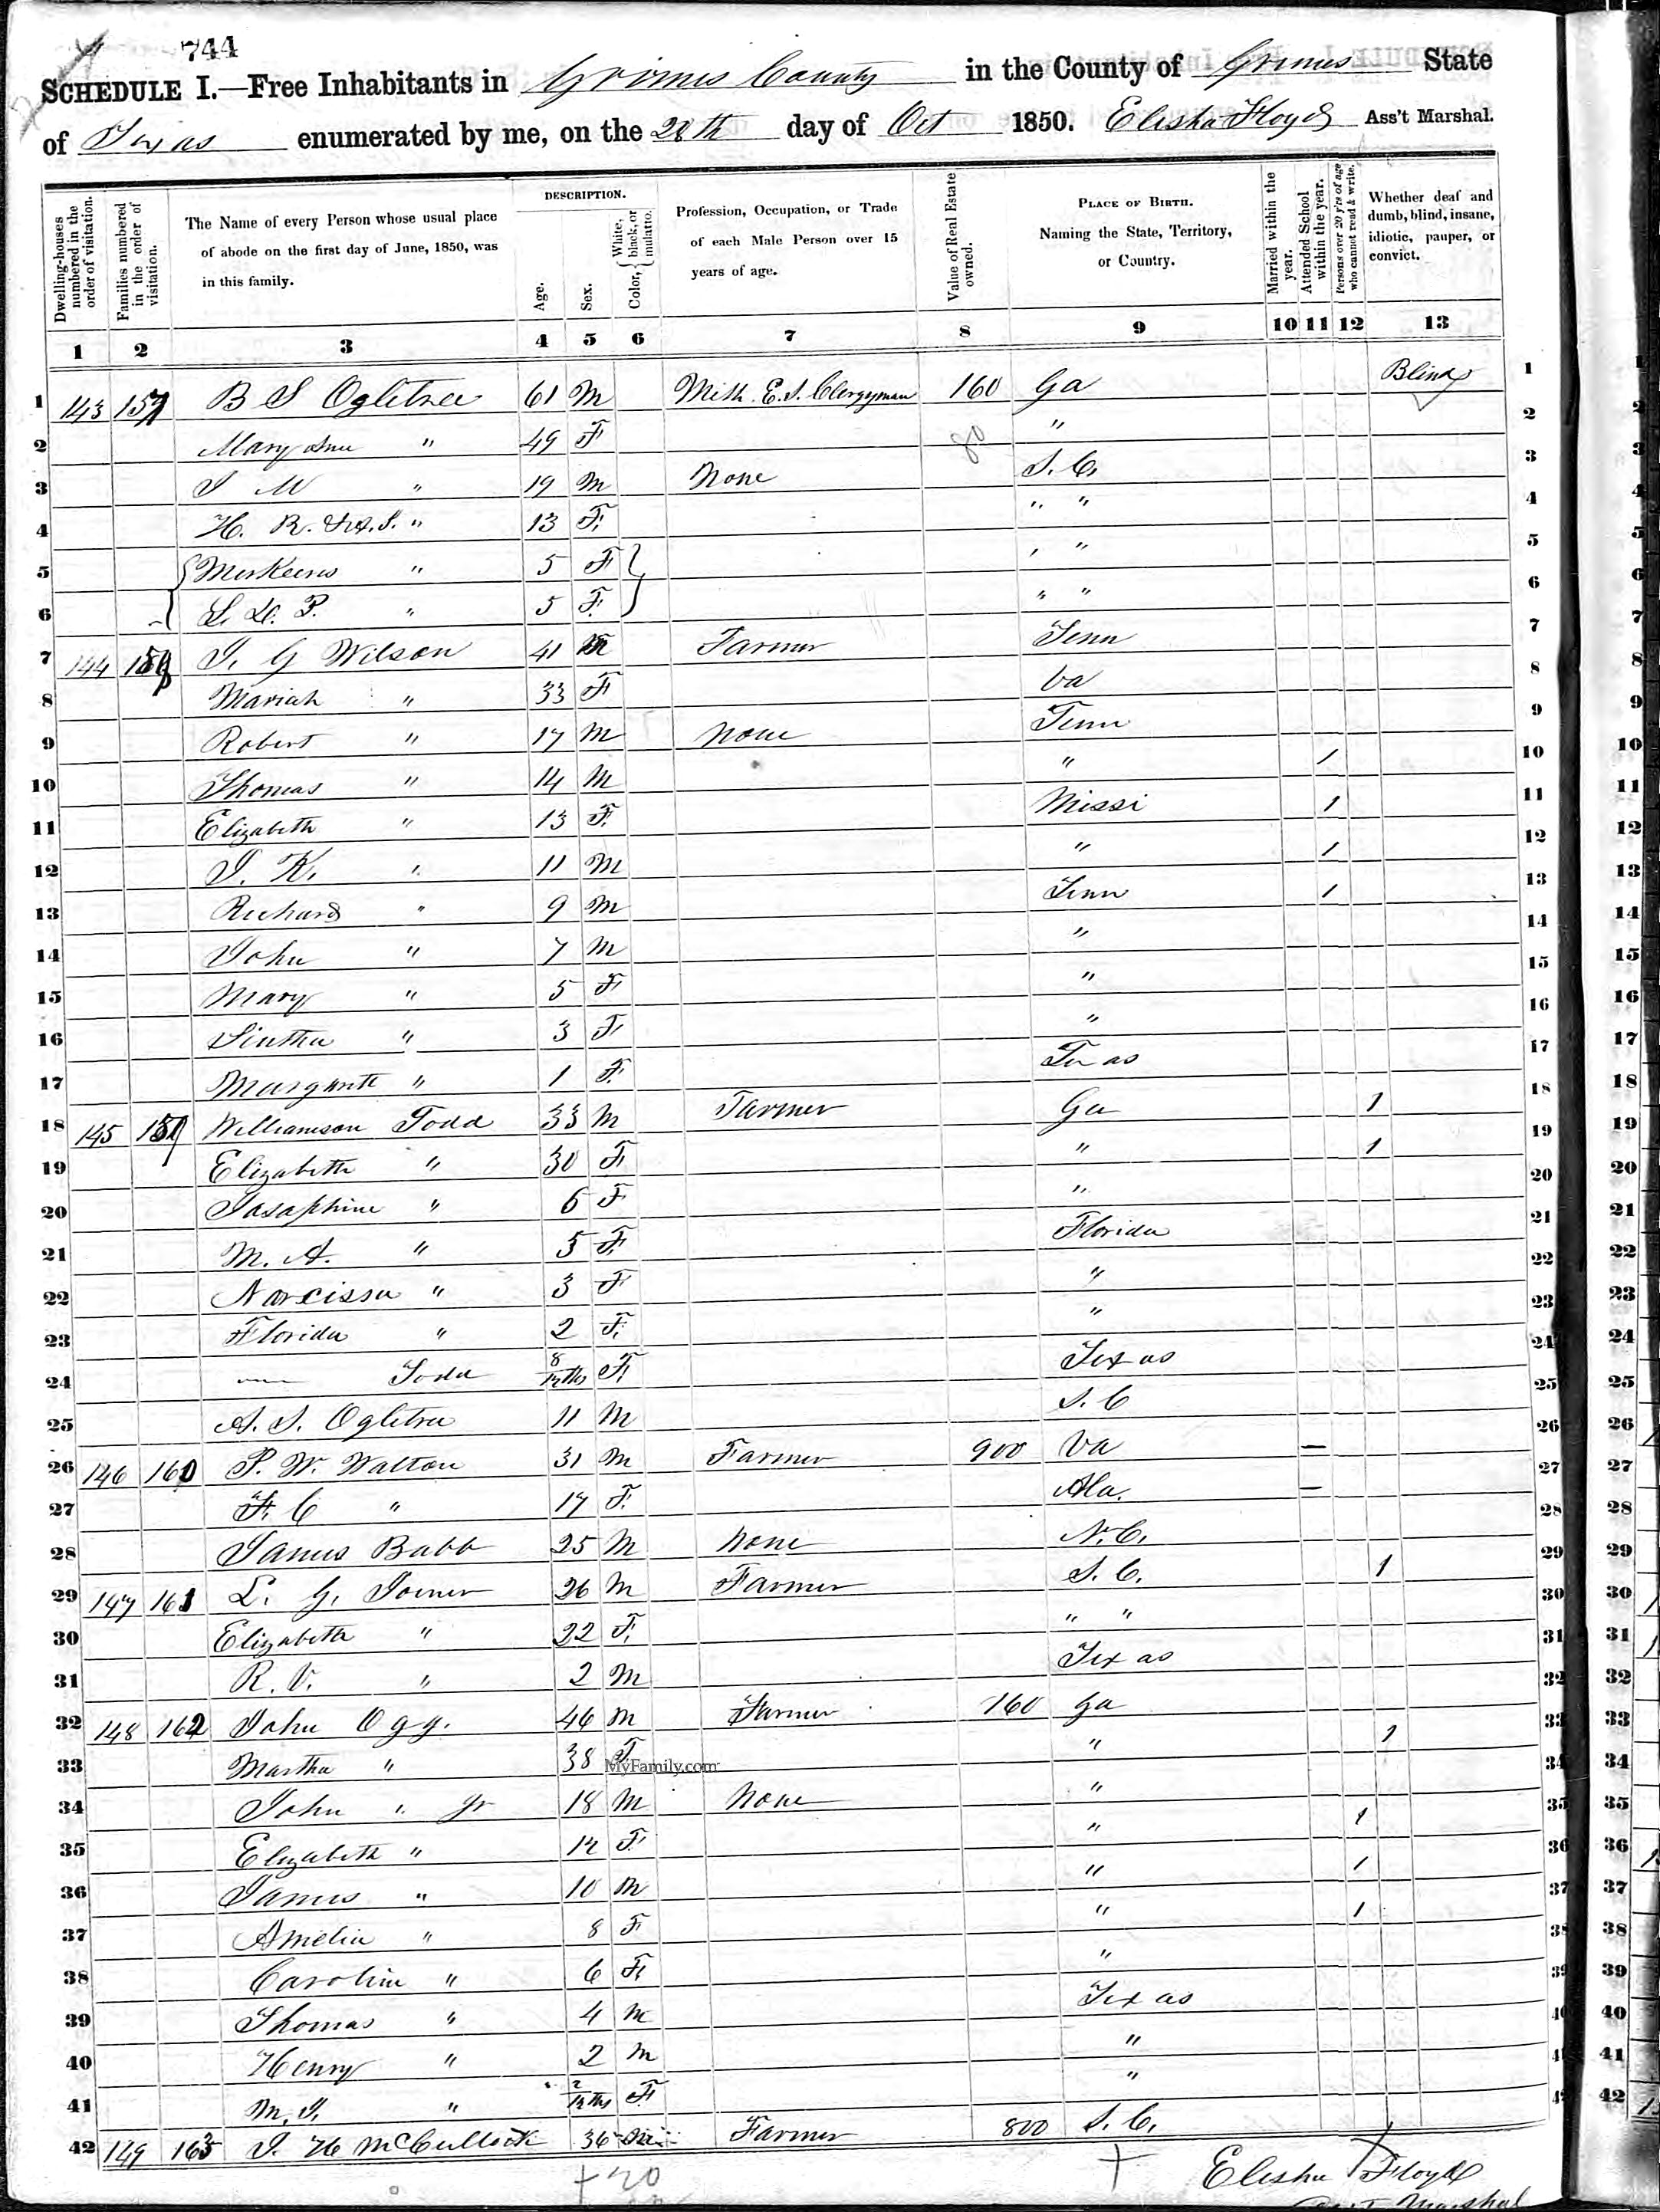 744
SCHEDULE I.—Free Inhabitants in Grimes County in the County of Grimes State
of Texas enumerated by me, on the 28th day of Oct 1850. Elisha Floyd Ass't Marshal.
Dwelling-houses numbered in the order of visitation.
Families numbered in the order of visitation.
The Name of every Person whose usual place of abode on the first day of June, 1850, was in this family.
DESCRIPTION.
Age.
Sex.
Color, { White, black, or mulatto.
Profession, Occupation, or Trade of each Male Person over 15 years of age.
Value of Real Estate owned.
PLACE OF BIRTH. Naming the State, Territory, or Country.
Married within the year.
Attended School within the year.
Persons over 20 y'rs of age who cannot read & write.
Whether deaf and dumb, blind, insane, idiotic, pauper, or convict.
1 2 3 4 5 6 7 8 9 10 11 12 13
1 143 157 B S Ogletree 61 M Meth. E. S. Clergyman 160 Ga Blind 1
2 Mary Ann " 49 F 80 " 2
3 J M " 19 M None S. C. 3
4 H. R. " 13 F. " " 4
5 " 5 F " 5
6 " 5 F. " " 6
7 144 158 J. G Wilson 41 M Farmer Tenn 7
8 Mariah " 33 F Va 8
9 Robert " 17 M None Tenn 9
10 Thomas " 14 M " 1 10
11 Elizabeth " 13 F. Missi 1 11
12 J. K. " 11 M " 1 12
13 Richard " 9 M Tenn 1 13
14 John " 7 M " 14
15 Mary " 5 F " 15
16 Sintha " 3 F " 16
17 Margarett " 1 F. Texas 17
18 145 159 Williamson Todd 33 M Farmer Ga 1 18
19 Elizabeth " 30 F " 1 19
20 Jasaphine " 6 F " 20
21 M. A. " 5 F. Florida 21
22 Narcissa " 3 F " 22
23 Florida " 2 F. " 23
24 — Todd 8/12ths F. Texas 24
25 A. S. Ogletree 11 M S. C 25
26 146 160 P. W. Walton 31 M Farmer 900 Va — 26
27 F. C " 17 F. Ala. — 27
28 James Babb 25 M None N. C. 28
29 147 161 L. G. Joiner 26 M Farmer S. C. 1 29
30 Elizabeth " 22 F. " " 30
31 R. V. " 2 M Texas 31
32 148 162 John Ogg. 46 M Farmer 160 Ga 32
33 Martha " 38 F " 1 33
34 John " Jr 18 M None " 34
35 Elizabeth " 12 F. " 1 35
36 James " 10 M " 1 36
37 Amelia " 8 F " 1 37
38 Caroline " 6 F. " 38
39 Thomas " 4 M Texas 39
40 Henry " 2 M " 40
41 M. J. " 2/12ths F. " 41
42 149 163 J. H McCullock 36 M Farmer 800 S. C. 42
MyFamily.com
+ 20
Elisha Floyd
Marshal